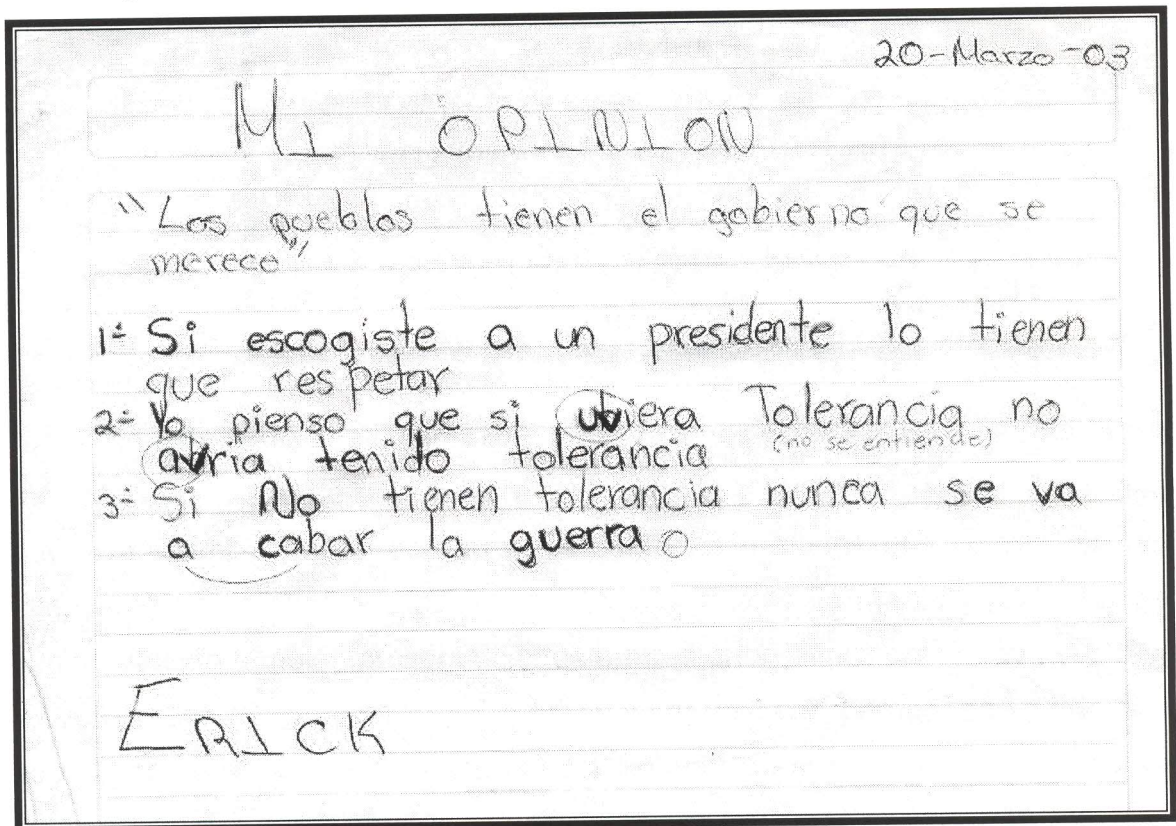 20-Marzo-03
MI OPINION
"Los pueblos tienen el gobierno que se
merece"
1- Si escogiste a un presidente lo tienen
que respetar
2- Yo pienso que si ubiera Tolerancia no
(no se entiende)
abria tenido tolerancia
3- Si No tienen tolerancia nunca se va
a cabar la guerra
ERICK